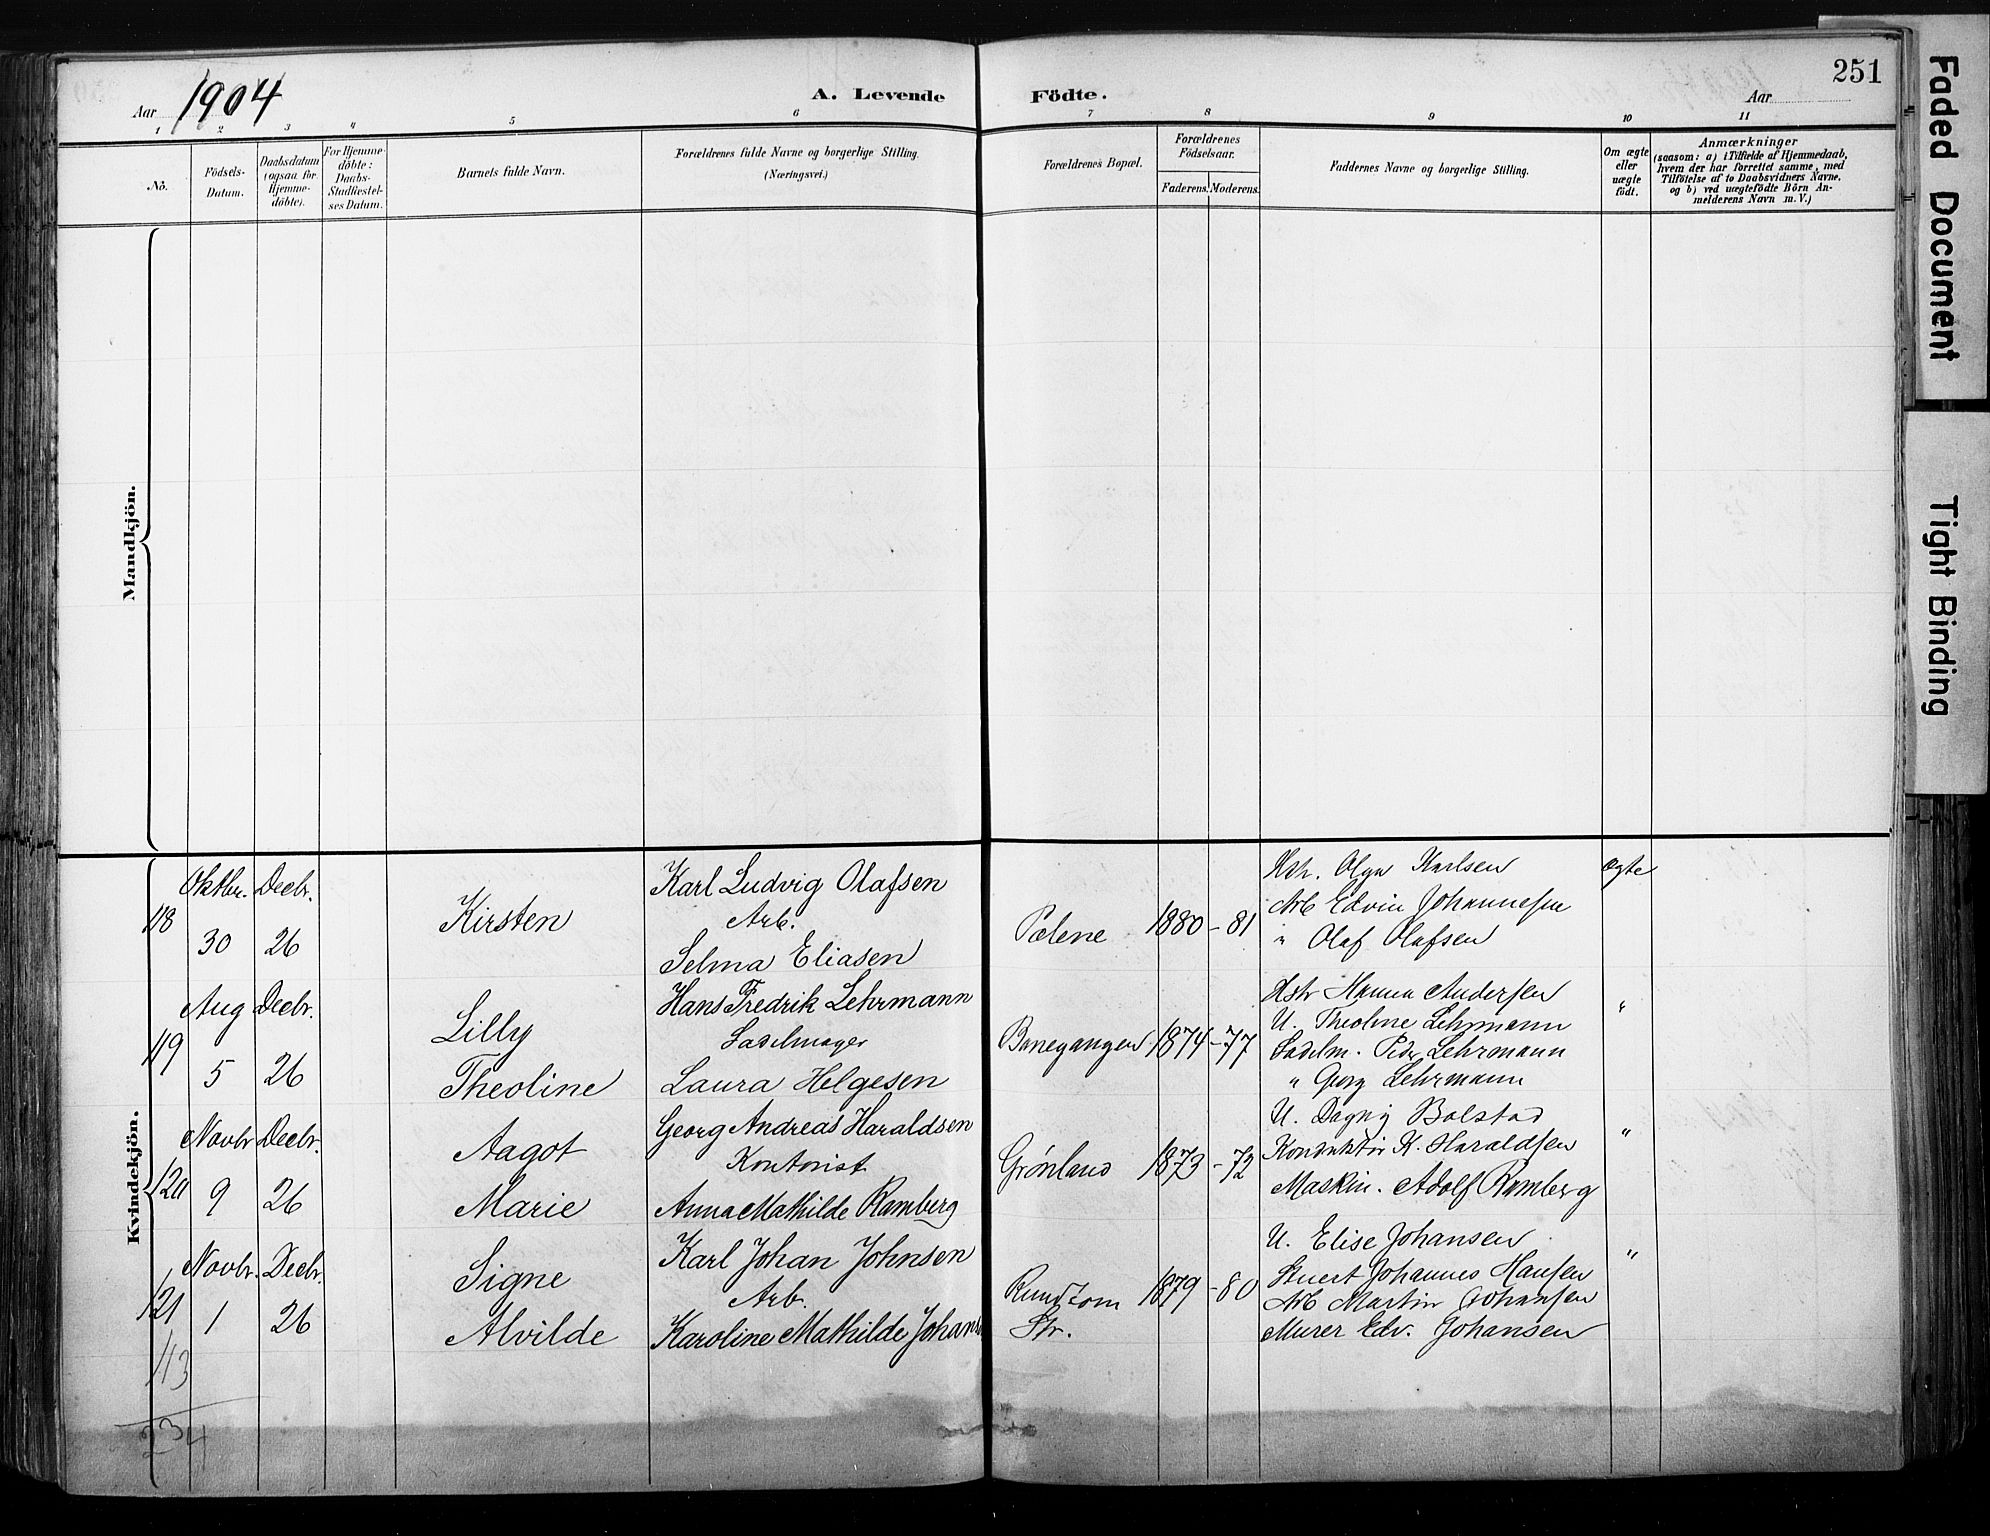 251
Aar 1904
A. Levende Födte.
Aar
1 2 3 4 5 6 7 8 9 10 11
No.
Födsels-
Datum.
Daabsdatum
(ogsaa for
Hjemme-
döbte).
For Hjemme-
döbte:
Daabs-
Stadfæstel-
ses Datum.
Barnets fulde Navn.
Forældrenes fulde Navne og borgerlige Stilling.
(Næringsvei.)
Forældrenes Bopæl.
Forældrenes
Födselsaar.
Faderens. Moderens.
Faddernes Navne og borgerlige Stilling.
Om ægte
eller
uægte
födt.
Anmærkninger
(saasom: a) i Tilfælde af Hjemmedaab,
hvem der har forrettet samme, med
Tilföielse af to Daabsvidners Navne,
og b) ved uægtefödte Börn An-
melderens Navn m. V.)
Mandkjön.
Kvindekjön.
118
Oktbr.
30
Decbr.
26
Kirsten
Karl Ludvig Olafsen
Arb.
Selma Eliasen
Pælene
1880 - 81
Hstr. Olga Karlsen
Arb Edvin Johannesen
" Olaf Olafsen
Ægte
119
Aug
5
Decbr.
26
Lilly
Theoline
Hans Fredrik Lehrmann
Sadelmager
Laura Helgesen
Banegangen
1874 - 77
Hstr Hanna Andersen
U. Theoline Lehrmann
Sadelm. Peder Lehrmann
" Georg Lehrmann
"
120
Novbr
9
Decbr.
26
Aagot
Marie
Georg Andreas Haraldsen
Kontorist
Anna Mathilde Ramberg
Grönland
1873 - 72
U. Dagny Bolstad
Konduktör K. Haraldsen
Maskin. Adolf Ramberg
"
121
Novbr.
1
Decbr.
26
Signe
Alvilde
Karl Johan Johnsen
Arb.
Karoline Mathilde Johans
Rundtom
Str.
1879 - 80
U. Elise Johansen
Stuert Johannes Hansen
Arb Martin Johansen
Murer Edv. Johansen
"
113
234
Faded Document
Tight Binding